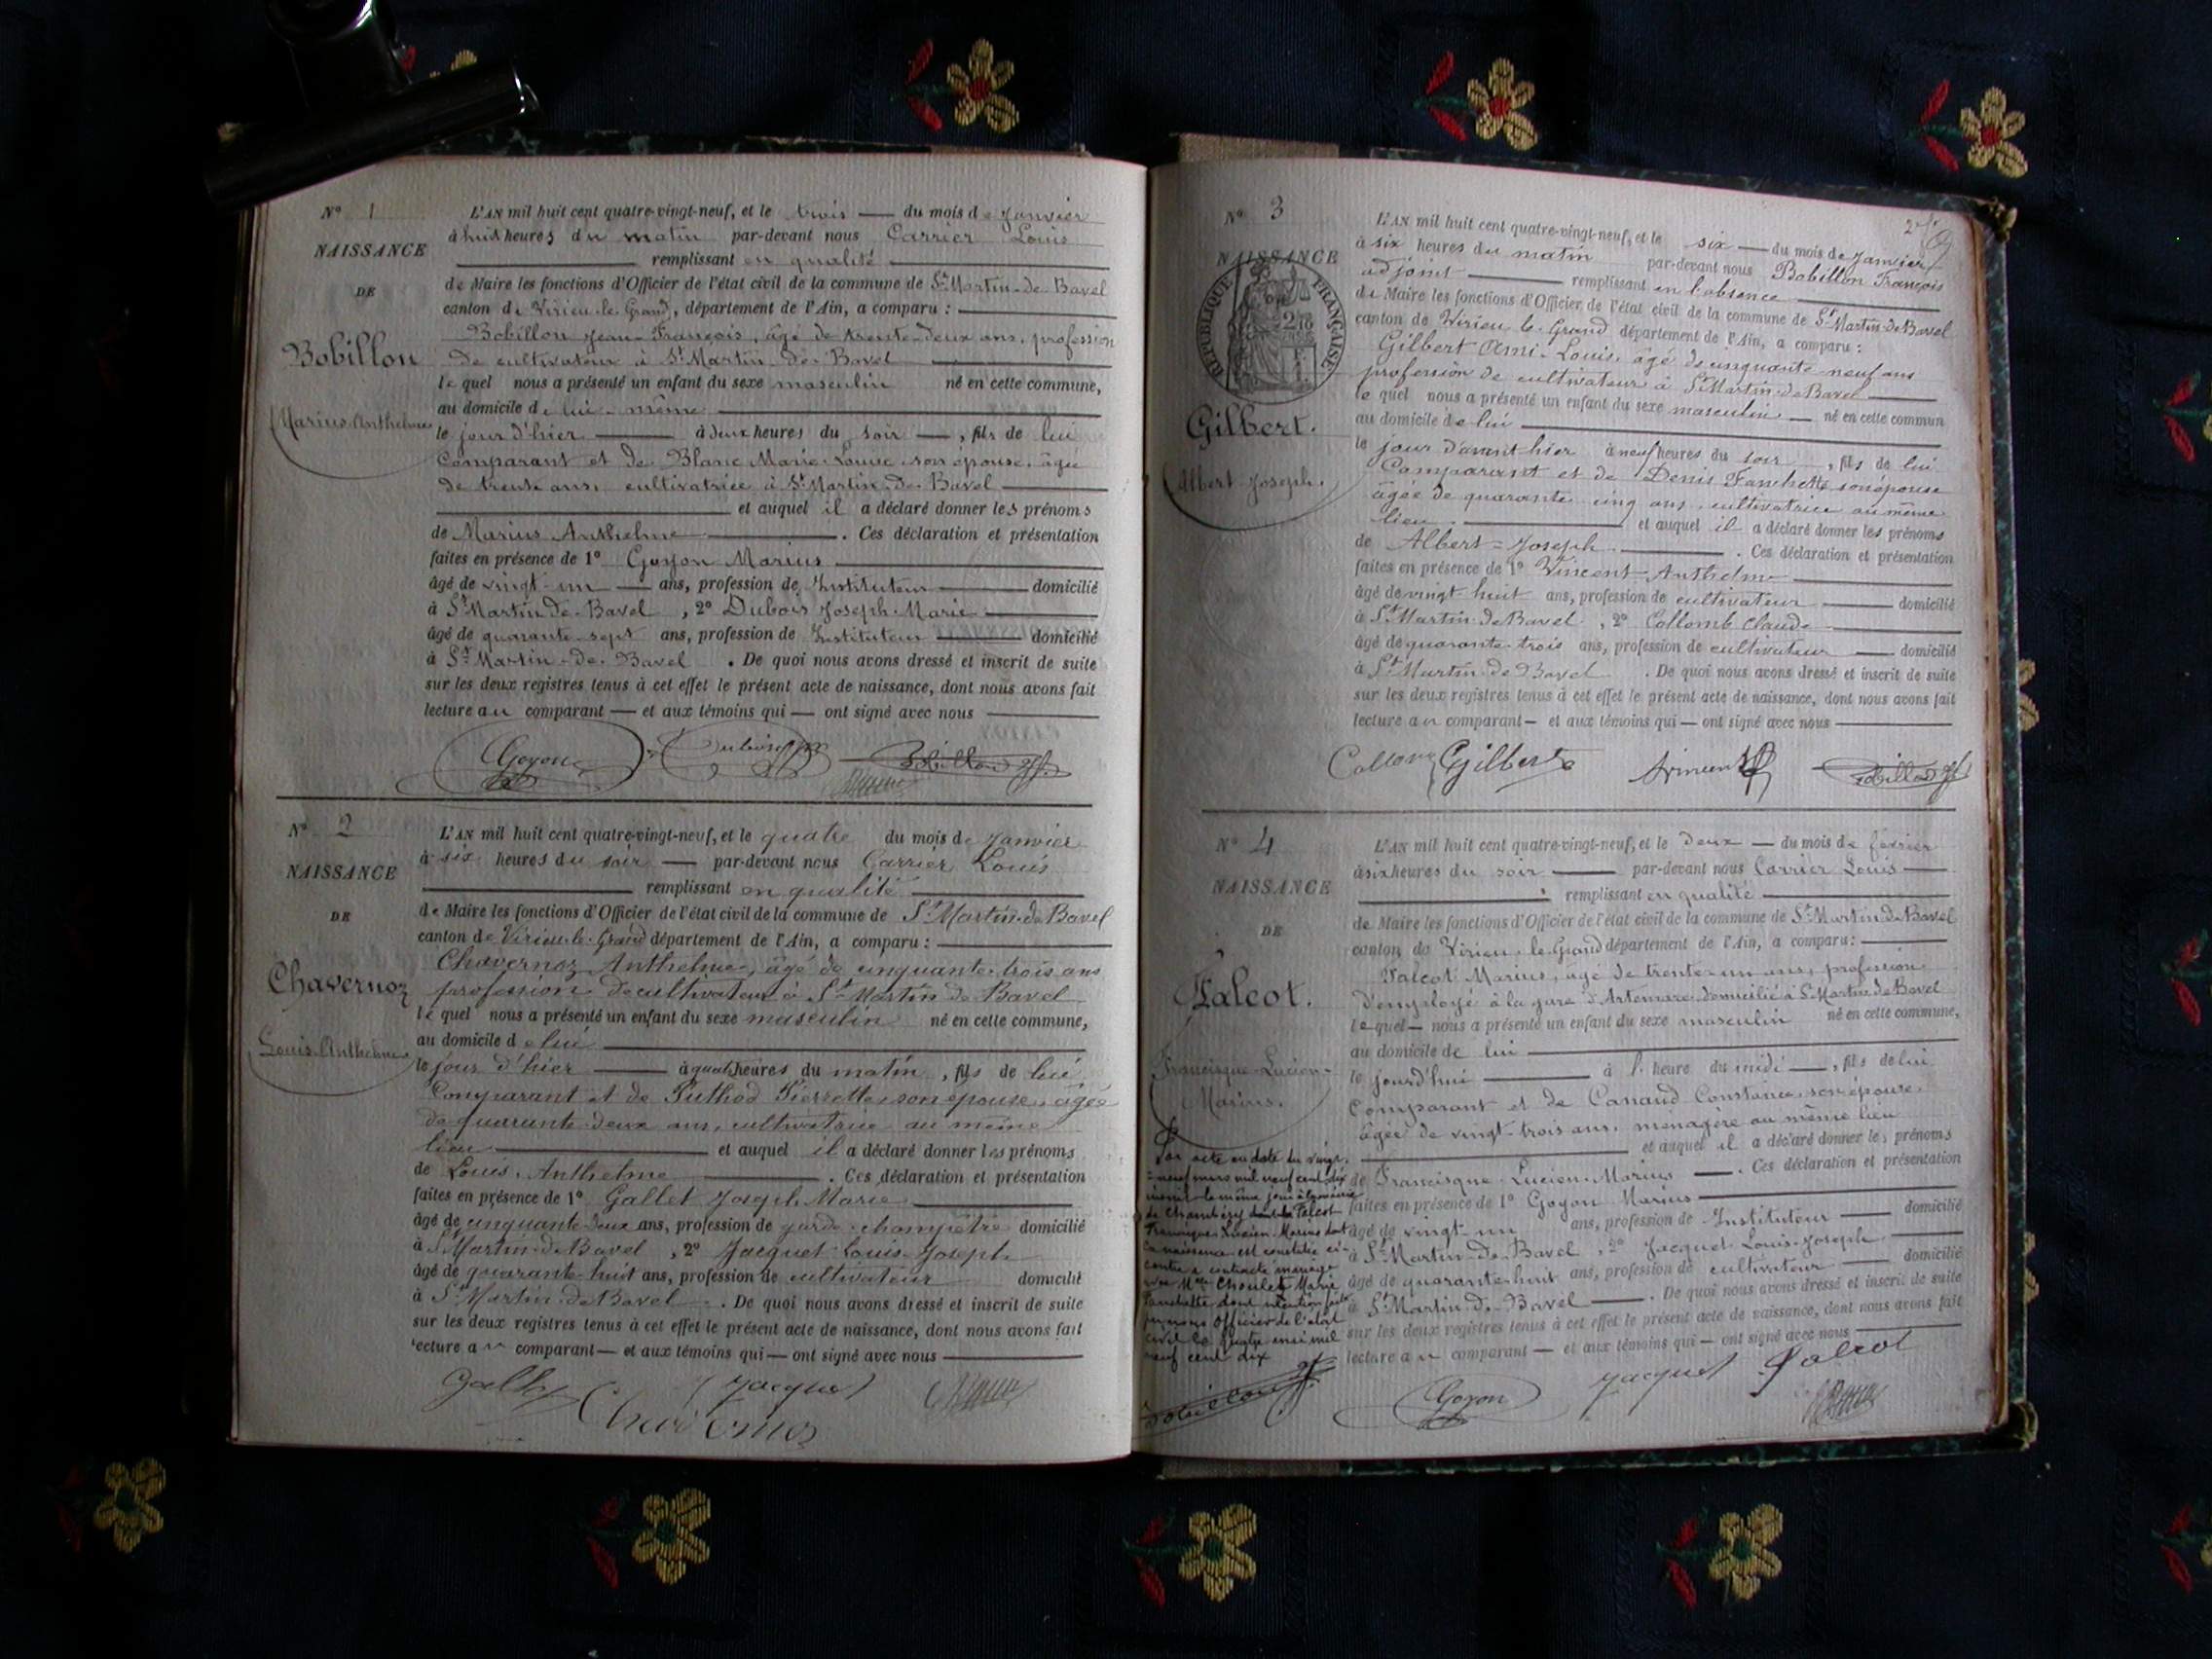 N° 1
NAISSANCE
DE
Bobillon
Marius Anthelme
L'AN mil huit cent quatre-vingt-neuf, et le trois du mois de Janvier
à huit heures du matin par-devant nous Carrier Louis
remplissant en qualité
de Maire les fonctions d'Officier de l'état civil de la commune de St Martin-de-Bavel
canton de Virieu-le-Grand, département de l'Ain, a comparu :
Bobillon Jean-François, âgé de trente-deux ans, profession
de cultivateur à St Martin-de-Bavel
lequel nous a présenté un enfant du sexe masculin né en cette commune,
au domicile de lui-même
le jour d'hier à deux heures du soir , fils de lui
Comparant et de Blanc Marie-Louise son épouse, âgée
de trente ans, cultivatrice à St Martin-de-Bavel
et auquel il a déclaré donner les prénoms
de Marius Anthelme . Ces déclaration et présentation
faites en présence de 1° Goyon Marius
âgé de vingt-un ans, profession de Instituteur domicilié
à St Martin-de-Bavel , 2° Dubois Joseph-Marie
âgé de quarante-sept ans, profession de Instituteur domicilié
à St Martin-de-Bavel . De quoi nous avons dressé et inscrit de suite
sur les deux registres tenus à cet effet le présent acte de naissance, dont nous avons fait
lecture au comparant et aux témoins qui ont signé avec nous
Goyon Dubois Bobillon jf
N° 2
NAISSANCE
DE
Chavernoz
Louis-Anthelme
L'AN mil huit cent quatre-vingt-neuf, et le quatre du mois de Janvier
à six heures du soir par-devant nous Carrier Louis
remplissant en qualité
de Maire les fonctions d'Officier de l'état civil de la commune de St Martin-de-Bavel
canton de Virieu-le-Grand département de l'Ain, a comparu :
Chavernoz Anthelme, âgé de cinquante-trois ans
profession de cultivateur à St Martin de Bavel
lequel nous a présenté un enfant du sexe masculin né en cette commune,
au domicile de lui
le jour d'hier à quatre heures du matin , fils de lui
Comparant et de Puthod Pierrette son épouse, âgée
de quarante-deux ans, cultivatrice au même
lieu et auquel il a déclaré donner les prénoms
de Louis-Anthelme . Ces déclaration et présentation
faites en présence de 1° Gallet Joseph-Marie
âgé de cinquante-deux ans, profession de garde-champêtre domicilié
à St Martin-de-Bavel , 2° Jacquet Louis-Joseph
âgé de quarante-huit ans, profession de cultivateur domicilié
à St Martin-de-Bavel . De quoi nous avons dressé et inscrit de suite
sur les deux registres tenus à cet effet le présent acte de naissance, dont nous avons fait
lecture au comparant et aux témoins qui ont signé avec nous
Gallet Jacquet
Chavernoz
N° 3
NAISSANCE
RÉPUBLIQUE FRANÇAISE
Gilbert.
Albert-Joseph.
L'AN mil huit cent quatre-vingt-neuf, et le six du mois de Janvier
à six heures du matin par-devant nous Bobillon François
adjoint remplissant en l'absence
de Maire les fonctions d'Officier de l'état civil de la commune de St Martin-de-Bavel
canton de Virieu-le-Grand département de l'Ain, a comparu :
Gilbert Ami-Louis, âgé de cinquante-neuf ans
profession de cultivateur à St Martin-de-Bavel
lequel nous a présenté un enfant du sexe masculin né en cette commun
au domicile de lui
le jour d'avant hier à neuf heures du soir , fils de lui
Comparant et de Denis Fanchette son épouse
âgée de quarante-cinq ans, cultivatrice au même
lieu. et auquel il a déclaré donner les prénoms
de Albert-Joseph . Ces déclaration et présentation
faites en présence de 1° Vincent Anthelme
âgé de vingt huit ans, profession de cultivateur domicilié
à St Martin-de-Bavel , 2° Collomb Claude
âgé de quarante-trois ans, profession de cultivateur domicilié
à St Martin-de-Bavel . De quoi nous avons dressé et inscrit de suite
sur les deux registres tenus à cet effet le présent acte de naissance, dont nous avons fait
lecture au comparant et aux témoins qui ont signé avec nous
Gilbert Vincent Bobillon jf
N° 4
NAISSANCE
DE
Falcot.
Francisque-Lucien-
Marius.
Par acte en date du vingt-
neuf mars mil neuf cent dix
inscrit le même jour à la mairie
de Chambéry Falcot
Francisque Lucien Marius dont
la naissance est constatée ci-
contre a contracté mariage
avec Mlle Choulet Marie
Fanchette dont mention faite
par nous Officier de l'état
civil le quatre mai mil
neuf cent dix
Bobillon jf
L'AN mil huit cent quatre-vingt-neuf, et le deux du mois de février
à six heures du soir par-devant nous Carrier Louis
remplissant en qualité
de Maire les fonctions d'Officier de l'état civil de la commune de St Martin-de-Bavel
canton de Virieu-le-Grand département de l'Ain, a comparu :
Falcot Marius, âgé de trente-un ans, profession
d'employé à la gare d'Artemare domicilié à St Martin de Bavel
lequel nous a présenté un enfant du sexe masculin né en cette commune,
au domicile de lui
le jourd'hui à l'heure du midi , fils de lui
Comparant et de Canaud Constance son épouse,
âgée de vingt-trois ans, ménagère au même lieu
et auquel il a déclaré donner les prénoms
de Francisque-Lucien-Marius . Ces déclaration et présentation
faites en présence de 1° Goyon Marius
âgé de vingt-un ans, profession de Instituteur domicilié
à St Martin-de-Bavel , 2° Jacquet Louis-Joseph
âgé de quarante-huit ans, profession de cultivateur domicilié
à St Martin-de-Bavel . De quoi nous avons dressé et inscrit de suite
sur les deux registres tenus à cet effet le présent acte de naissance, dont nous avons fait
lecture au comparant et aux témoins qui ont signé avec nous
Goyon Jacquet Falcot